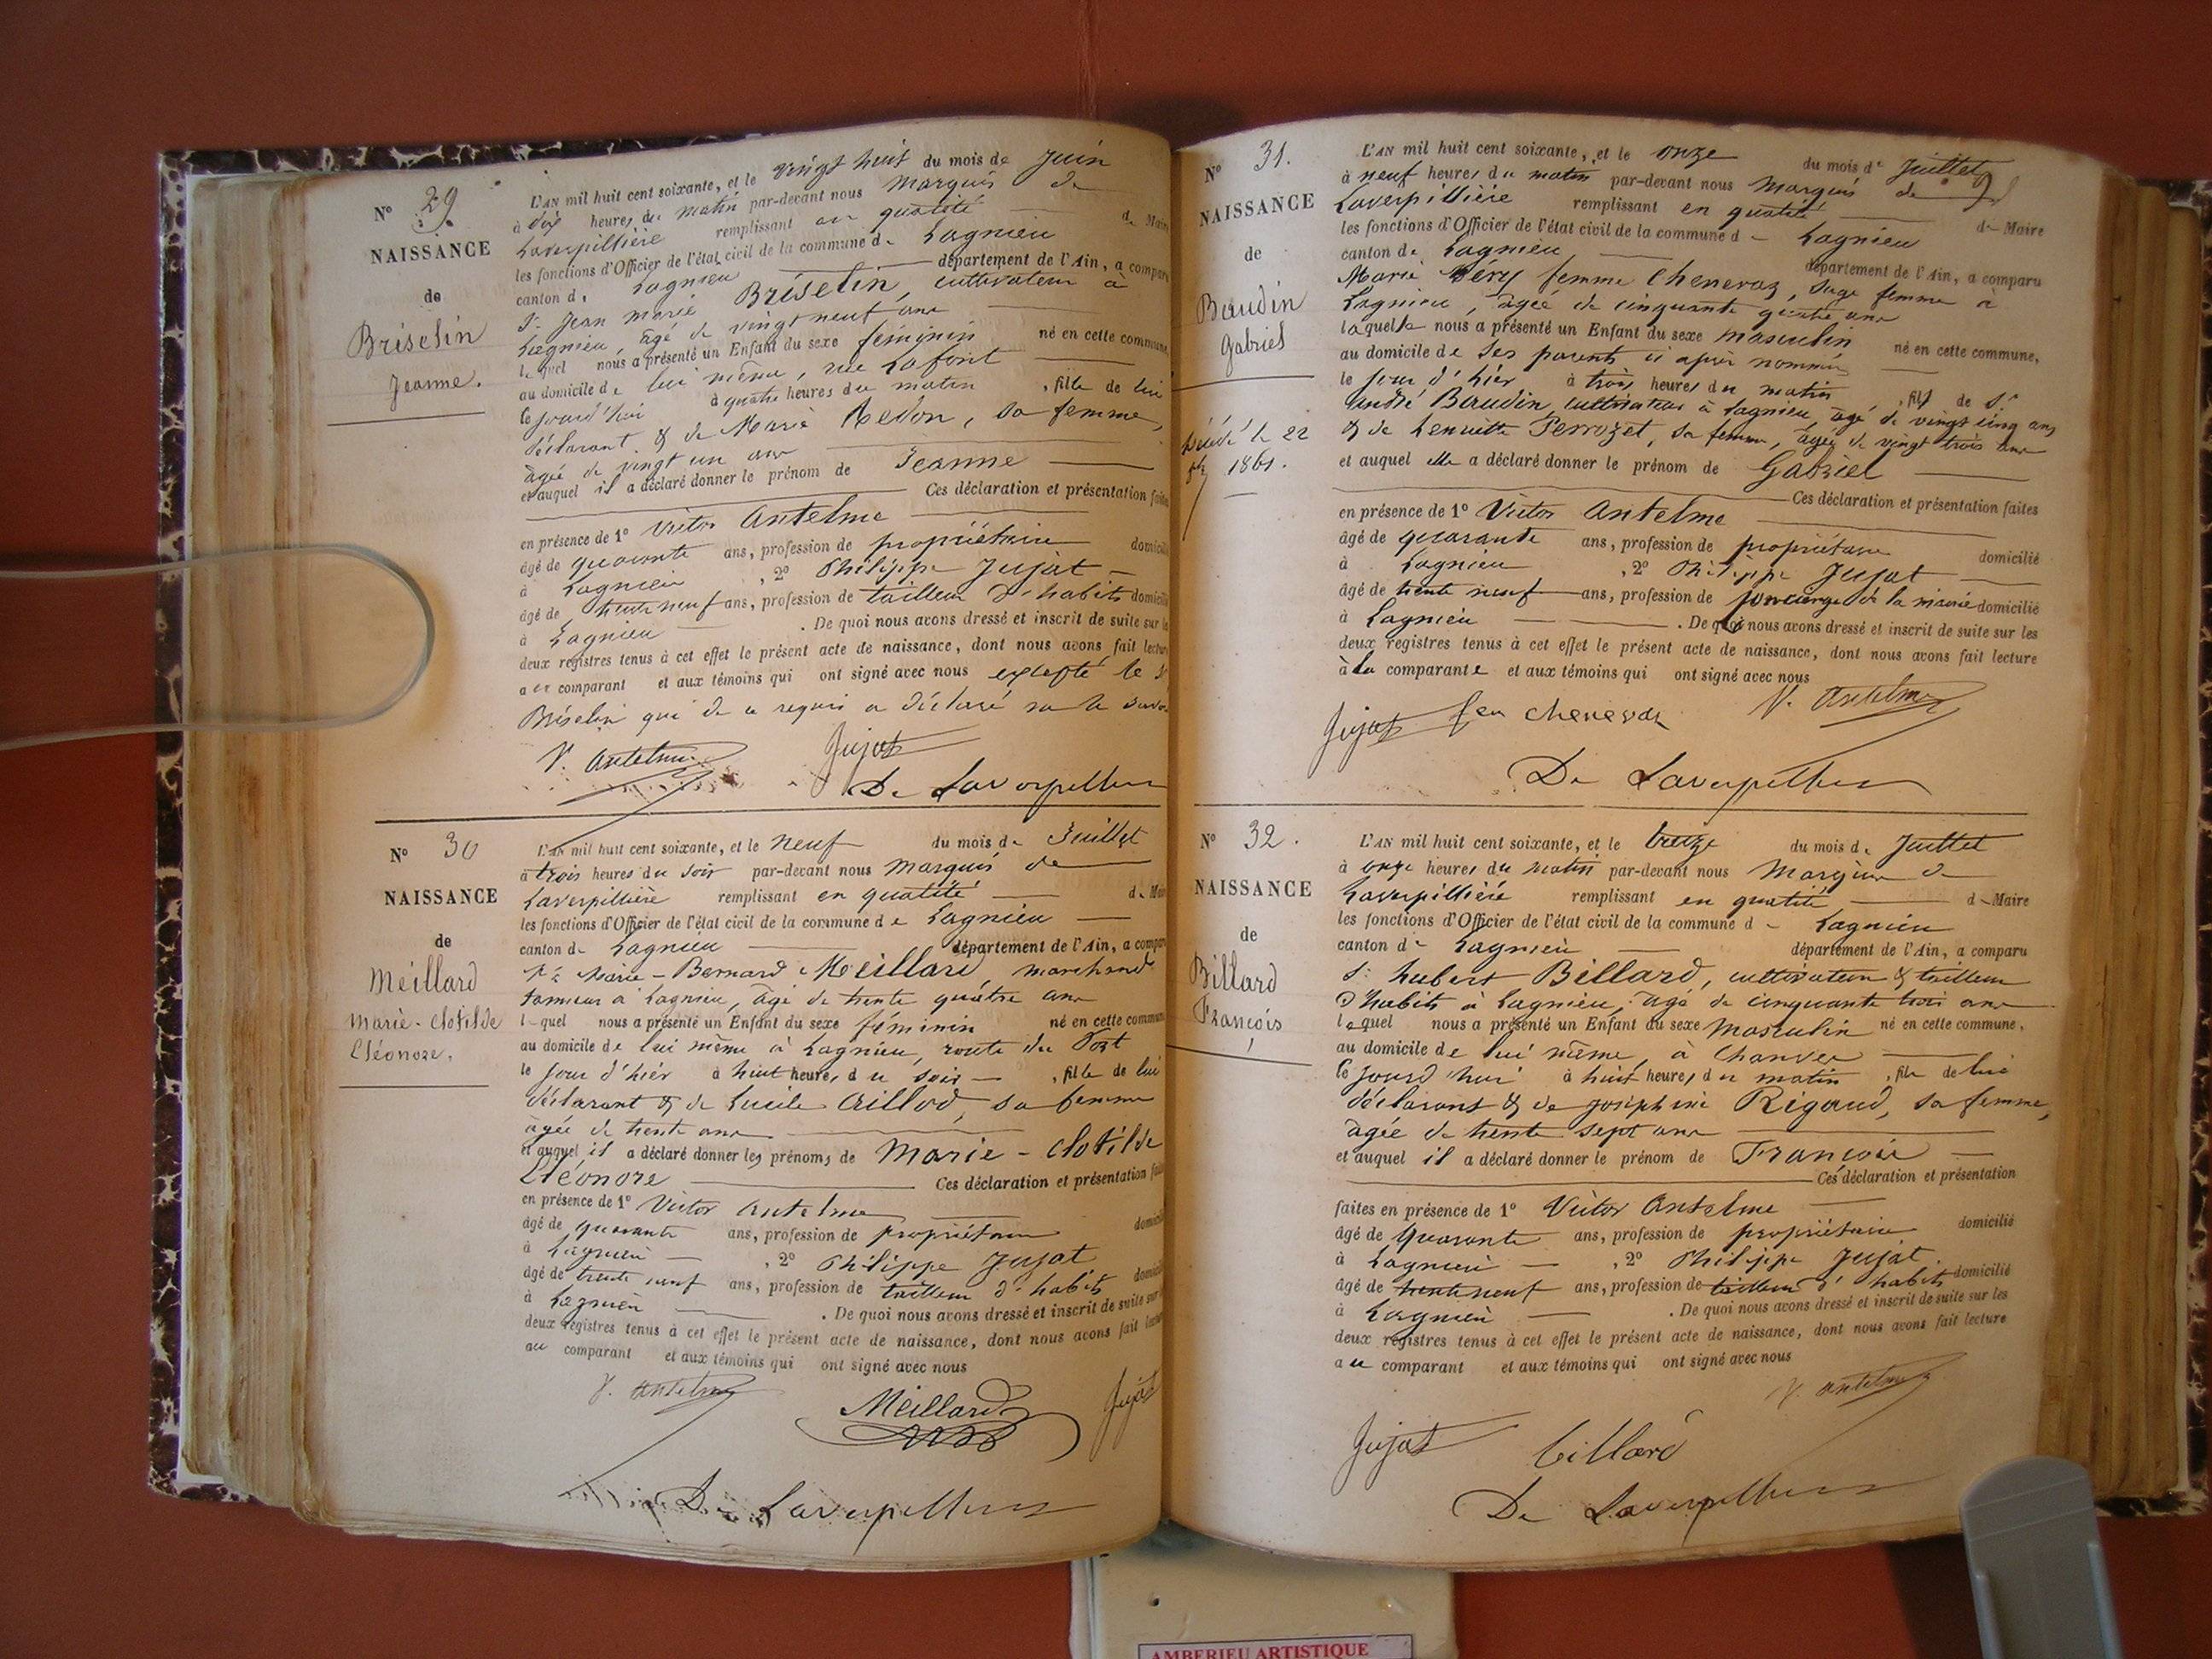 N° 29.
NAISSANCE
de
Briselin
Jeanne.
L'AN mil huit cent soixante, et le vingt huit du mois de Juin
à dix heures du matin par-devant nous Marquis de
Laverpillière remplissant en qualité de Maire
les fonctions d'Officier de l'état civil de la commune de Lagnieu
canton de Lagnieu département de l'Ain, a comparu
Sr Jean Marie Briselin, cultivateur à
Lagnieu, âgé de vingt neuf ans
lequel nous a présenté un Enfant du sexe féminin né en cette commune,
au domicile de lui même, rue Lafont
le jourd'hui à quatre heures du matin, fille de lui
déclarant & de Marie Redon, sa femme,
âgée de vingt un ans
et auquel il a déclaré donner le prénom de Jeanne
Ces déclaration et présentation faites
en présence de 1° Victor Antelme
âgé de quarante ans, profession de propriétaire domicilié
à Lagnieu, 2° Philippe Jujat
âgé de trente neuf ans, profession de tailleur d'habits domicilié
à Lagnieu. De quoi nous avons dressé et inscrit de suite sur les
deux registres tenus à cet effet le présent acte de naissance, dont nous avons fait lecture
au comparant et aux témoins qui ont signé avec nous excepté le Sr
Briselin qui de ce requis a déclaré ne le savoir
V. Antelme Jujat
De Laverpillière
N° 30
NAISSANCE
de
Meillard
Marie-Clotilde
Eléonore.
L'AN mil huit cent soixante, et le neuf du mois de Juillet
à trois heures du soir par-devant nous Marquis de
Laverpillière remplissant en qualité de Maire
les fonctions d'Officier de l'état civil de la commune de Lagnieu
canton de Lagnieu département de l'Ain, a comparu
Sr Marie-Bernard Meillard, marchand
tanneur à Lagnieu, âgé de trente quatre ans
lequel nous a présenté un Enfant du sexe féminin né en cette commune
au domicile de lui même à Lagnieu, route du Port
le jour d'hier à huit heures du soir, fille de lui
déclarant & de Lucile Aillod, sa femme
âgée de trente ans
et auquel il a déclaré donner les prénoms de Marie-Clotilde
Eléonore Ces déclaration et présentation faites
en présence de 1° Victor Antelme
âgé de quarante ans, profession de propriétaire domicilié
à Lagnieu, 2° Philippe Jujat
âgé de trente neuf ans, profession de tailleur d'habits domicilié
à Lagnieu. De quoi nous avons dressé et inscrit de suite sur les
deux registres tenus à cet effet le présent acte de naissance, dont nous avons fait lecture
au comparant et aux témoins qui ont signé avec nous
V. Antelme Meillard Jujat
De Laverpillière
N° 31.
NAISSANCE
de
Baudin
Gabriel
Décédé le 22
1861.
L'AN mil huit cent soixante, et le onze du mois de Juillet
à neuf heures du matin par-devant nous Marquis de
Laverpillière remplissant en qualité de Maire
les fonctions d'Officier de l'état civil de la commune de Lagnieu
canton de Lagnieu département de l'Ain, a comparu
Marie Véry femme Chenevaz, sage femme à
Lagnieu, âgée de cinquante quatre ans
laquelle nous a présenté un Enfant du sexe masculin né en cette commune,
au domicile de ses parents ci après nommés
le jour d'hier à trois heures du matin, fils de Sr
André Baudin, cultivateur à Lagnieu, âgé de vingt cinq ans
& de Perrozet, sa femme, âgée de vingt trois ans
et auquel elle a déclaré donner le prénom de Gabriel
Ces déclaration et présentation faites
en présence de 1° Victor Antelme
âgé de quarante ans, profession de propriétaire domicilié
à Lagnieu, 2° Philippe Jujat
âgé de trente neuf ans, profession de concierge de la mairie domicilié
à Lagnieu. De quoi nous avons dressé et inscrit de suite sur les
deux registres tenus à cet effet le présent acte de naissance, dont nous avons fait lecture
à la comparante et aux témoins qui ont signé avec nous
Jujat fe chenevaz V. Antelme
De Laverpillière
N° 32.
NAISSANCE
de
Billard
François
L'AN mil huit cent soixante, et le treize du mois de Juillet
à onze heures du matin par-devant nous Marquis de
Laverpillière remplissant en qualité de Maire
les fonctions d'Officier de l'état civil de la commune de Lagnieu
canton de Lagnieu département de l'Ain, a comparu
Sr hubert Billard, cultivateur & tailleur
d'habits à Lagnieu, âgé de cinquante trois ans
lequel nous a présenté un Enfant du sexe Masculin né en cette commune,
au domicile de lui même, à Chanves
le jourd'hui à huit heures du matin, fils de lui
déclarant & de Joséphine Rigaud, sa femme,
âgée de trente sept ans
et auquel il a déclaré donner le prénom de François
Ces déclaration et présentation
faites en présence de 1° Victor Antelme
âgé de quarante ans, profession de propriétaire domicilié
à Lagnieu, 2° Philippe Jujat
âgé de trente neuf ans, profession de tailleur d'habits domicilié
à Lagnieu. De quoi nous avons dressé et inscrit de suite sur les
deux registres tenus à cet effet le présent acte de naissance, dont nous avons fait lecture
au comparant et aux témoins qui ont signé avec nous
V. Antelme
Jujat billard
De Laverpillière
AMBERIEU ARTISTIQUE